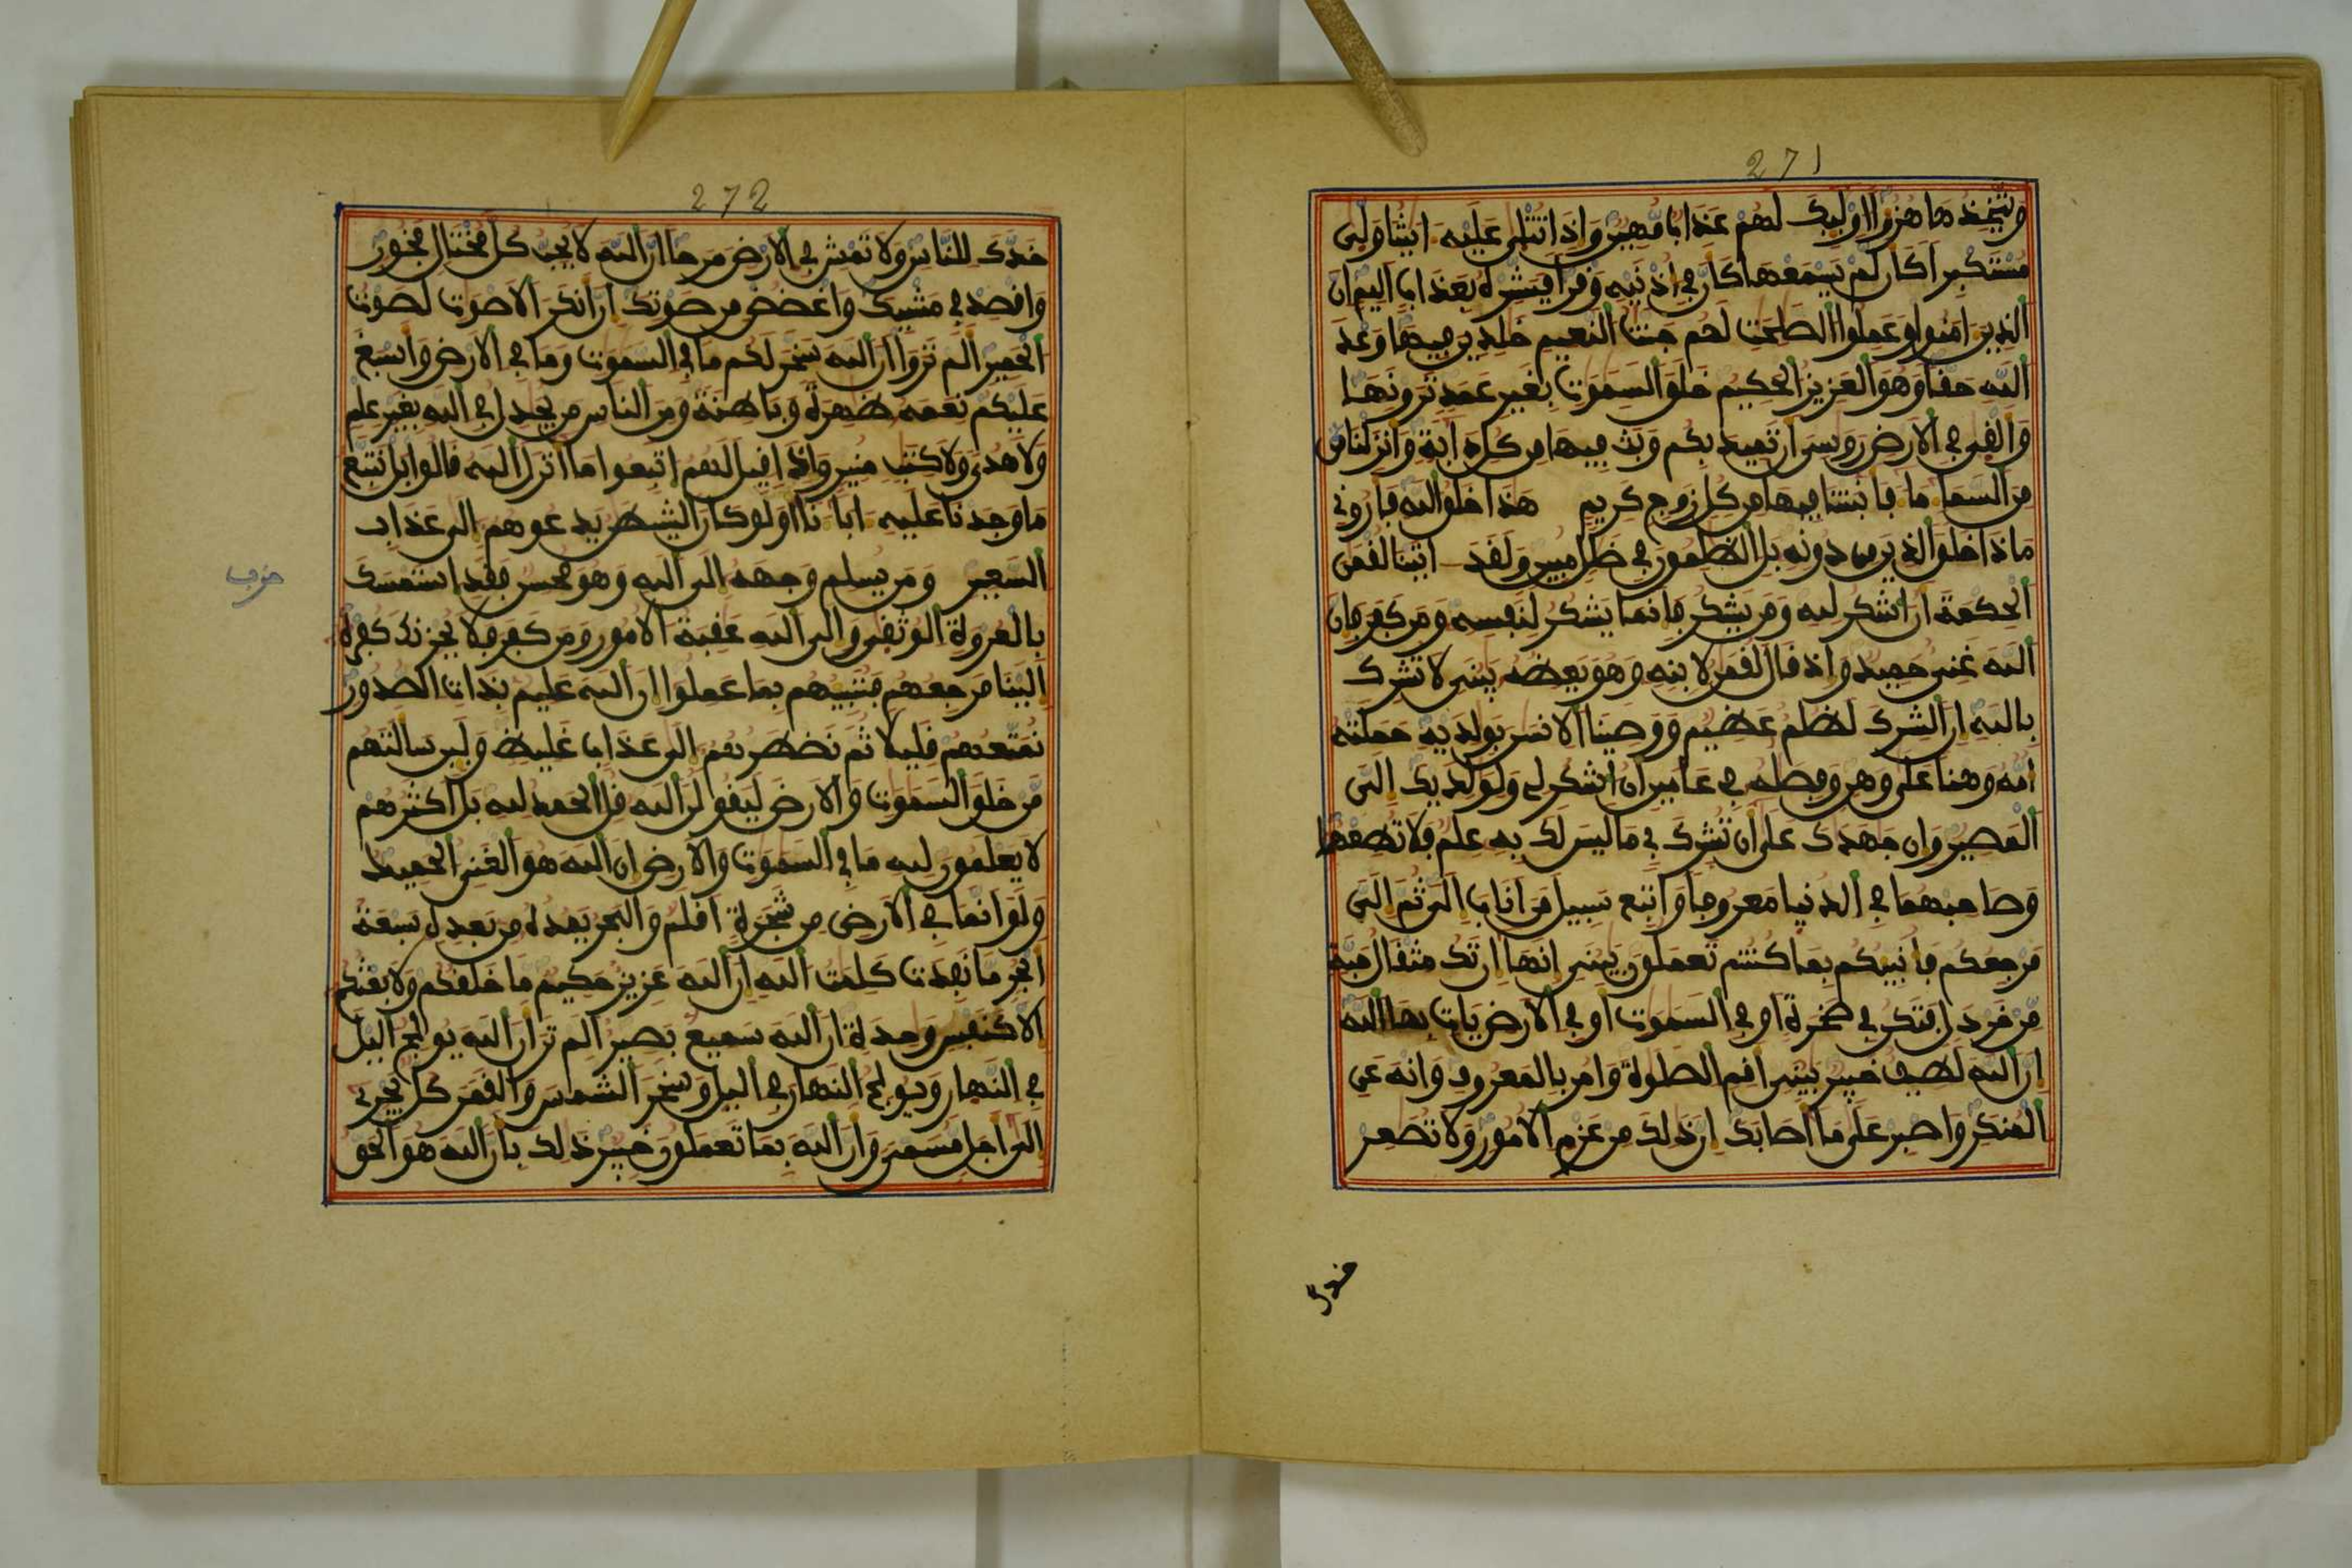 271
ويتخذها هزؤا اولىك لهم عذاب مهين واذا تتلى عليه ايتنا ولى
مستكبرا كان لم يسمعها كان في اذنيه وقرا فبشره بعذاب اليم ان
الذين امنوا وعملوا الصلحت لهم جنت النعيم خلدين فيها وعد
الله حقا وهو العزيز الحكيم خلق السموت بغير عمد ترونها
والقى في الارض روسي ان تميد بكم وبث فيها من كل دابة وانزلنا
من السما ما فانبتنا فيها من كل زوج كريم هذا خلق الله فاروني
ماذا خلق الذين من دونه بل الظلمون في ضلل مبين ولقد اتينا لقمن
الحكمة ان اشكر لله ومن يشكر فانما يشكر لنفسه ومن كفر فان
الله غني حميد واذ قال لقمن لابنه وهو يعظه يبني لا تشرك
بالله ان الشرك لظلم عظيم ووصينا الانسن بولديه حملته
امه وهنا على وهن وفصله في عامين ان اشكر لي ولولديك الي
المصير وان جهدك على ان تشرك بي ما ليس لك به علم فلا تطعهما
وصاحبهما في الدنيا معروفا واتبع سبيل من اناب الي ثم الي
مرجعكم فانبيكم بما كنتم تعملون يبني انها ان تك مثقال حبة
من خردل فتكن في صخرة او في السموت او في الارض يات بها الله
ان الله لطيف خبير يبني اقم الصلوة وامر بالمعروف وانه عن
المنكر واصبر على ما اصابك ان ذلك من عزم الامور ولا تصعر
خدك
272
خدك للناس ولا تمش في الارض مرحا ان الله لا يحب كل مختال فخور
واقصد في مشيك واغضض من صوتك ان انكر الاصوت لصوت
الحمير الم تروا ان الله سخر لكم ما في السموت وما في الارض واسبغ
عليكم نعمه ظهرة وباطنة ومن الناس من يجدل في الله بغير علم
ولا هدى ولا كتب منير واذا قيل لهم اتبعوا ما انزل الله قالوا بل نتبع
ما وجدنا عليه اباءنا اولو كان الشيطن يدعوهم الى عذاب
السعير ومن يسلم وجهه الى الله وهو محسن فقد استمسك
حزب
بالعروة الوثقى والى الله عقبة الامور ومن كفر فلا يحزنك كفره
الينا مرجعهم فننبيهم بما عملوا ان الله عليم بذات الصدور
نمتعهم قليلا ثم نضطرهم الى عذاب غليظ ولين سالتهم
من خلق السموت والارض ليقولن الله قل الحمد لله بل اكثرهم
لا يعلمون لله ما في السموت والارض ان الله هو الغني الحميد
ولو انما في الارض من شجرة اقلم والبحر يمده من بعده سبعة
ابحر ما نفدت كلمت الله ان الله عزيز حكيم ما خلقكم ولا بعثكم
الا كنفس وحدة ان الله سميع بصير الم تر ان الله يولج اليل
في النهار ويولج النهار في اليل وسخر الشمس والقمر كل يجري
الى اجل مسمى وان الله بما تعملون خبير ذلك بان الله هو الحق